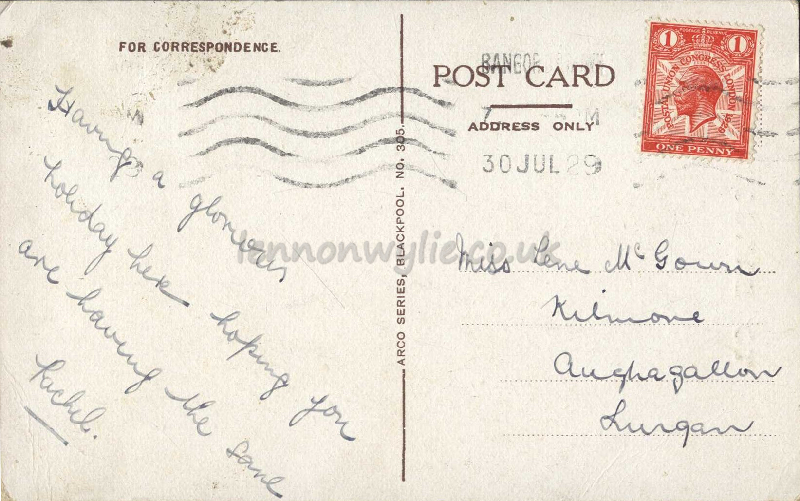 FOR CORRESPONDENCE.
Having a glorious
holiday here hoping you
are having the same
Rachel.
ARCO SERIES, BLACKPOOL. NO. 305.
POST CARD
ADDRESS ONLY
BANGOR
7 PM
30 JUL 29
1 1
POSTAL UNION CONGRESS LONDON 1929
ONE PENNY
Miss Lene McGown
Kilmore
Aughagallon
Lurgan
lennonwylie.co.uk